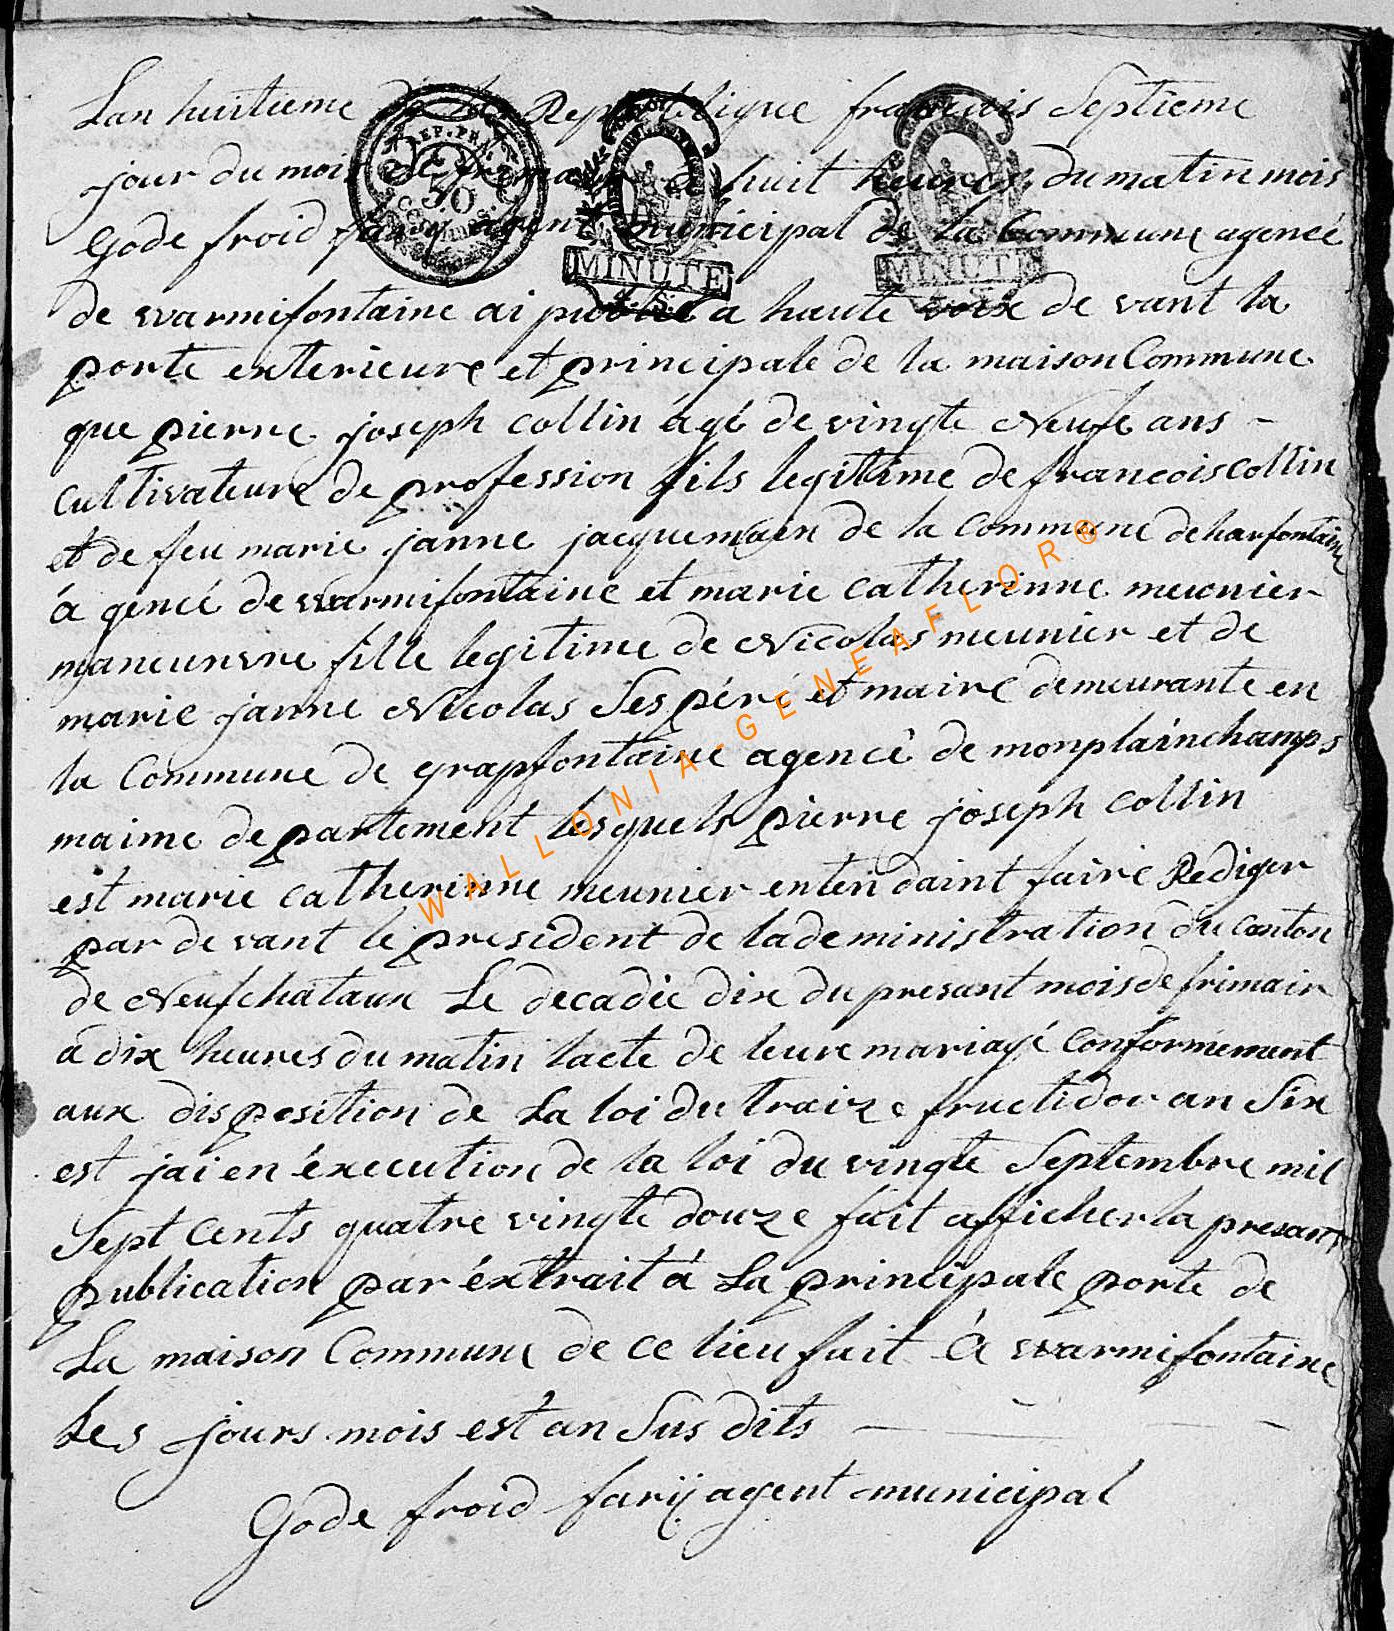 Lan huitieme de la Republique francais Septieme
jour du mois de frimair a huit heures du matin mois
Gode froid farij agent municipal de la Commune agencé
de warmifontaine ai publié a haute voix de vant la
porte exterieure et principale de la maison Commune
que pierre joseph Collin agé de vingte Neufe ans -
Cultivateure de profession fils legitime de francois collin
et de feu marie janne jacquemaen de la Commune de haufontaine
á gencé de warmifontaine et marie catherinne meunier
maneuvre fille legitime de Nicolas meunier et de
marie janne Nicolas Ses péré et maire demeurante en
la Commune de grapfontaine agencé de monplainchamps
maime departement lesquels pierre joseph Collin
est marie Catherinne meunier enten daint faire Rediger
par de vant le president de ladeministration du Canton
de Neufchataux Le decadie dix du presant mois de frimair
á dix heures du matin lacte de leure mariagé Conformement
aux disposition de La loi du traize fructidor an Six
est jai en éxecution de la loi du vingte Septembre mil
Sept Cents quatre vingte douze fait afficher la presant
publication par éxtrait á La principale porte de
La maison Commune de ce lieu fait á warmifontaine
Les jours mois est an Sus dits
Gode froid farij agent municipal
REP. FRA.
50
MINUTE
MINUTE
WALLONIA-GENEAFLOR®